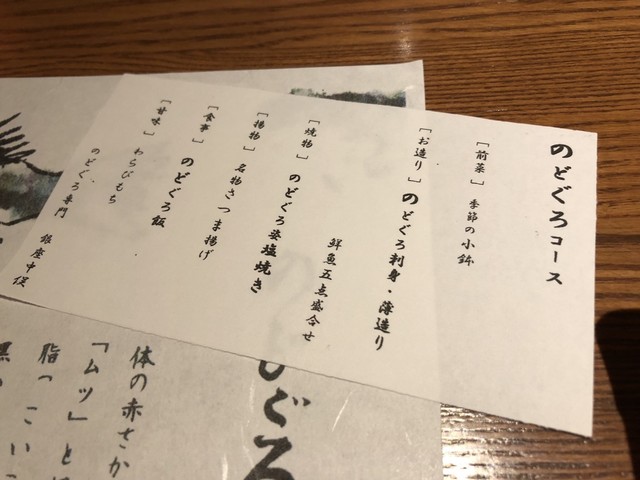 のどぐろコース
［前菜］ 季節の小鉢
［お造り］ のどぐろ刺身・薄造り
鮮魚五点盛合せ
［焼物］ のどぐろ姿塩焼き
［揚物］ 名物さつま揚げ
［食事］ のどぐろ飯
［甘味］ わらびもち
のどぐろ専門 銀座中俣
のどぐろ
体の赤さか
「ムツ」と
脂っこい
黒